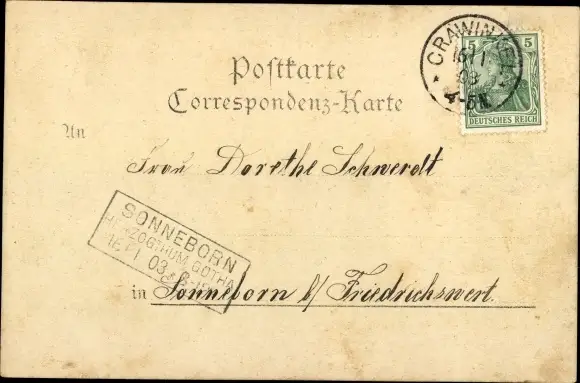 CRAWINKEL
16/1
03
4-5N.
5 5
DEUTSCHES REICH
Postkarte
Correspondenz-Karte
An
Frau Dorethe Schwerdt
SONNEBORN
HERZOGTHUM GOTHA
16/1 03
in Sonneborn b/ Friedrichswert.